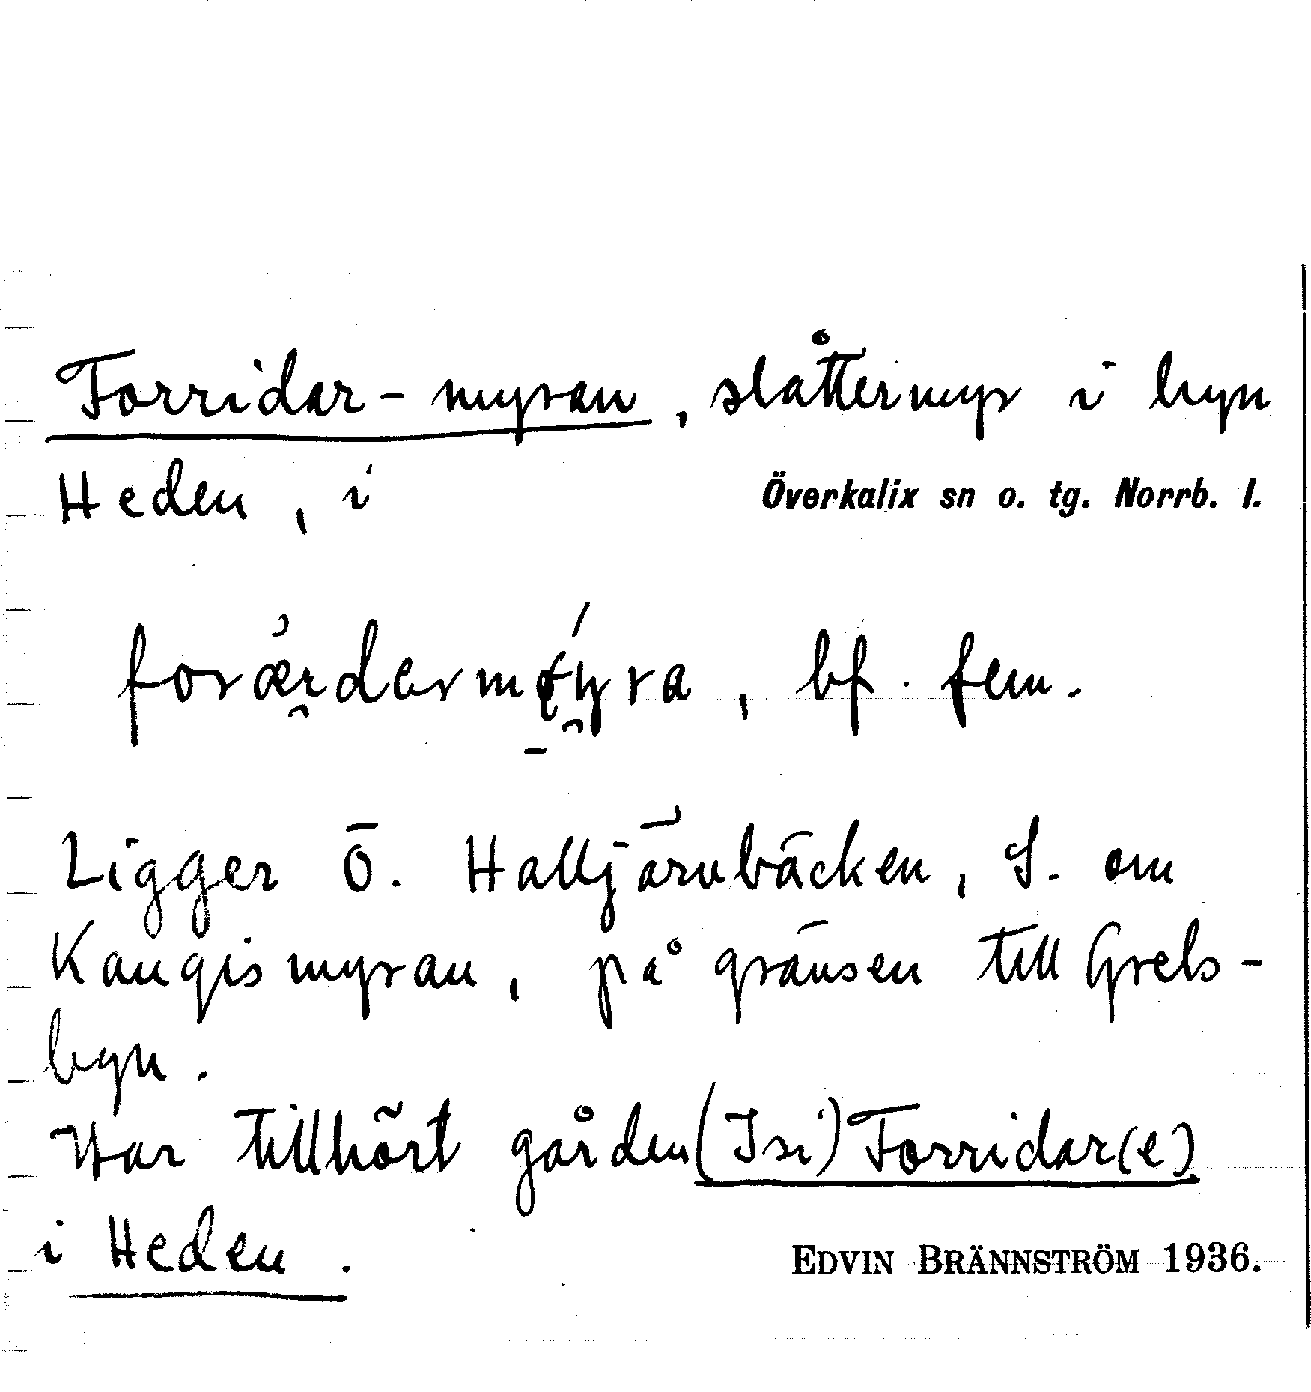 Forridar-myran, slåttermyr i byn
Heden, i Överkalix sn o. tg. Norrb. l.
bf. fem.
Ligger Ö. Halljärvbäcken, S. om
Kangismyran, på gränsen till Grels-
byn.
Har tillhört gården (Isi) Forridar(e)
i Heden.
EDVIN BRÄNNSTRÖM 1936.